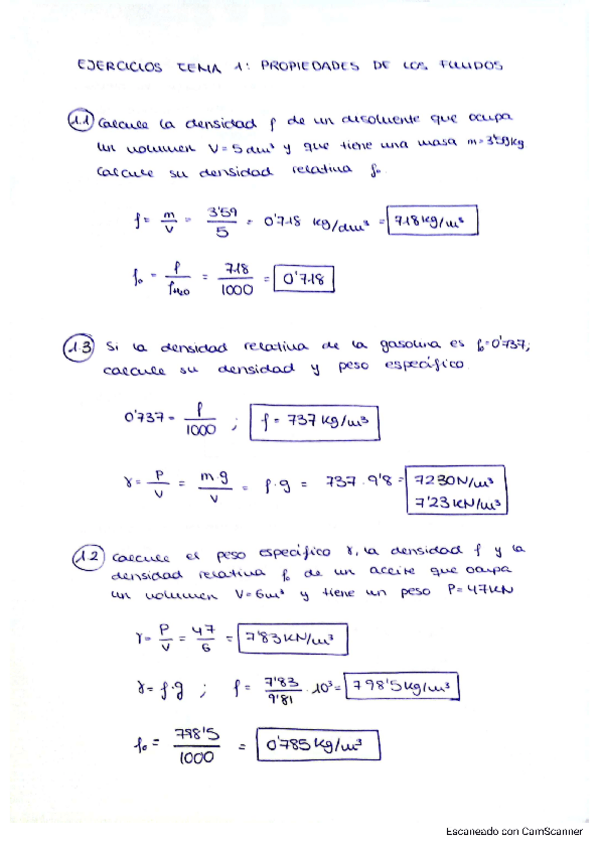 EJERCICIOS TEMA 1: PROPIEDADES DE LOS FLUIDOS
1.1 Calcule la densidad ρ de un disolvente que ocupa
un volumen V=5dm³ y que tiene una masa m=3'59kg
Calcule su densidad relativa ρo.
ρ = m/V = 3'59/5 = 0'718 kg/dm³ = 718kg/m³
ρo = ρ/ρH2O = 718/1000 = 0'718
1.3 Si la densidad relativa de la gasolina es ρo=0'737,
calcule su densidad y peso específico.
0'737 = ρ/1000 ; ρ = 737 kg/m³
γ = P/V = m g/V = ρ·g = 737·9'8 = 7230N/m³
7'23KN/m³
1.2 Calcule el peso específico γ, la densidad ρ y la
densidad relativa ρo de un aceite que ocupa
un volumen V=6m³ y tiene un peso P=47KN
γ = P/V = 47/6 = 7'83KN/m³
γ = ρ·g ; ρ = 7'83/9'81 · 10³ = 798'5kg/m³
ρo = 798'5/1000 = 0'785kg/m³
Escaneado con CamScanner